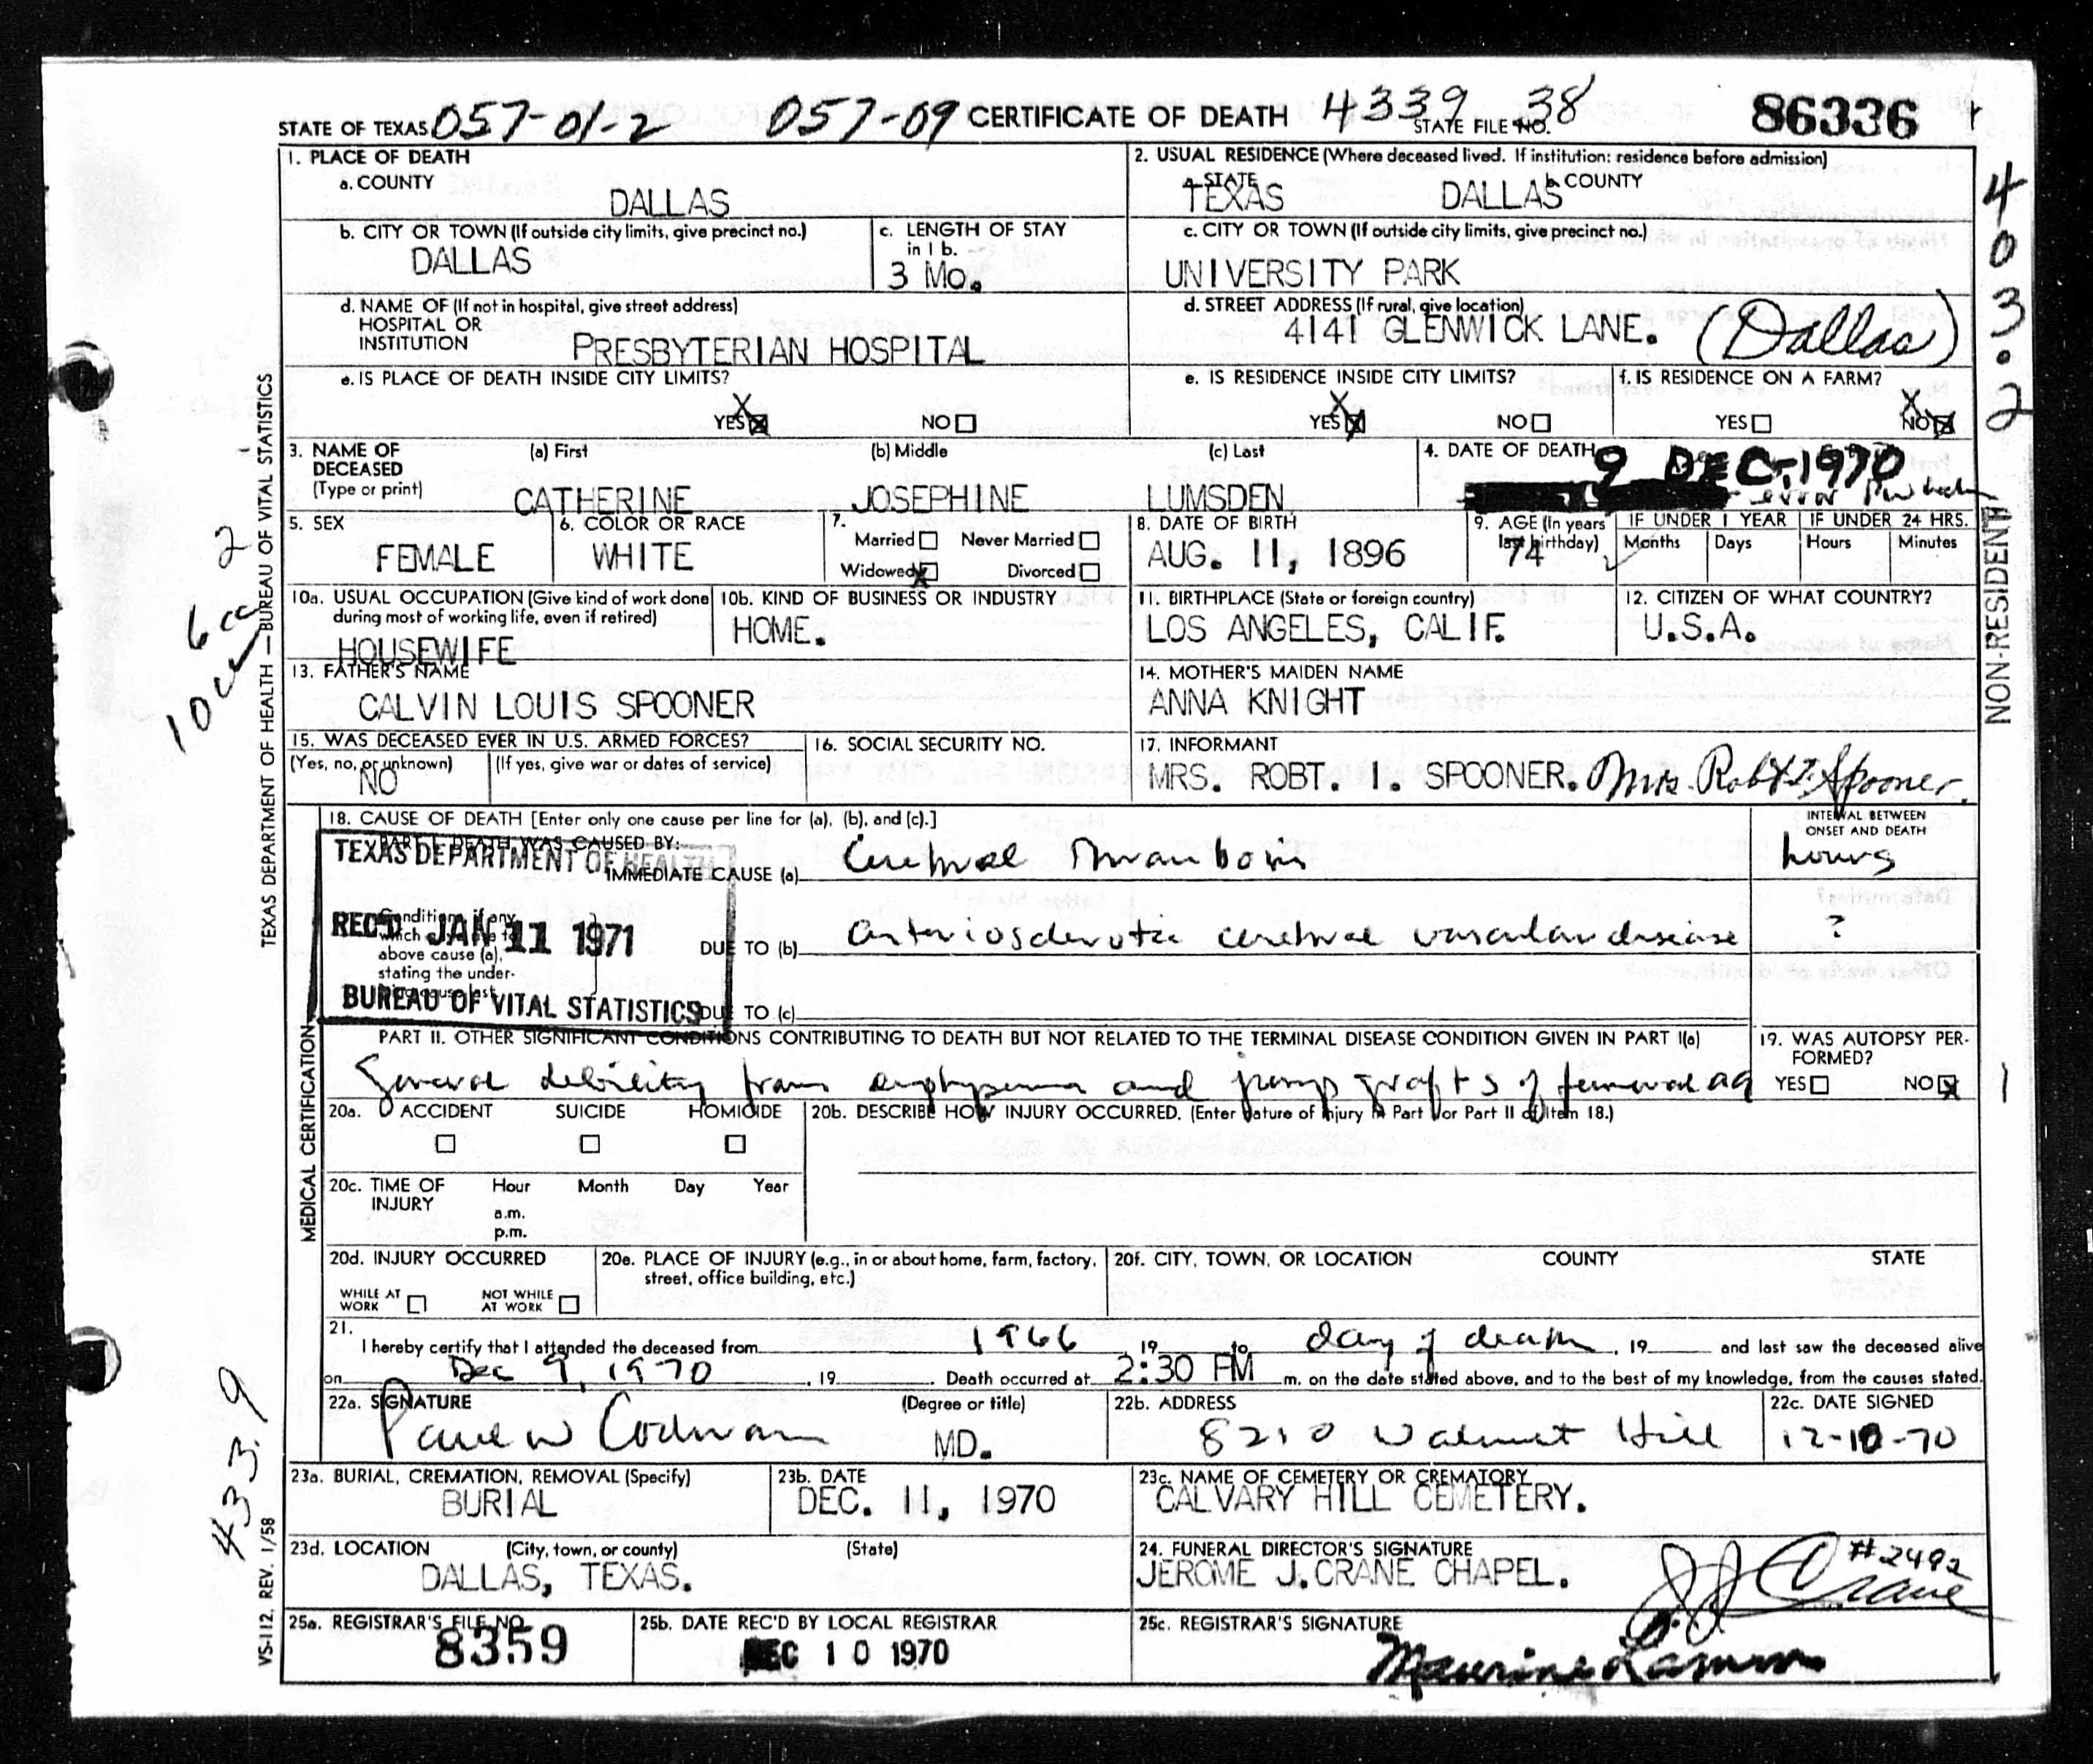 STATE OF TEXAS 057-01-2 057-09 CERTIFICATE OF DEATH 4339 38 STATE FILE NO. 86336
1. PLACE OF DEATH
a. COUNTY
DALLAS
2. USUAL RESIDENCE (Where deceased lived. If institution: residence before admission)
a. STATE b. COUNTY
TEXAS DALLAS
b. CITY OR TOWN (If outside city limits, give precinct no.)
DALLAS
c. LENGTH OF STAY
in 1 b.
3 Mo.
c. CITY OR TOWN (If outside city limits, give precinct no.)
UNIVERSITY PARK
d. NAME OF (If not in hospital, give street address)
HOSPITAL OR
INSTITUTION
PRESBYTERIAN HOSPITAL
d. STREET ADDRESS (If rural, give location)
4141 GLENWICK LANE. (Dallas)
e. IS PLACE OF DEATH INSIDE CITY LIMITS?
YES X NO
e. IS RESIDENCE INSIDE CITY LIMITS?
YES X NO
f. IS RESIDENCE ON A FARM?
YES NO X
3. NAME OF
DECEASED
(Type or print)
(a) First (b) Middle (c) Last
CATHERINE JOSEPHINE LUMSDEN
4. DATE OF DEATH
9 DEC. 1970
error
5. SEX
FEMALE
6. COLOR OR RACE
WHITE
7.
Married Never Married
Widowed X Divorced
8. DATE OF BIRTH
AUG. 11, 1896
9. AGE (In years
last birthday)
74
IF UNDER 1 YEAR IF UNDER 24 HRS.
Months Days Hours Minutes
10a. USUAL OCCUPATION (Give kind of work done
during most of working life, even if retired)
HOUSEWIFE
10b. KIND OF BUSINESS OR INDUSTRY
HOME.
11. BIRTHPLACE (State or foreign country)
LOS ANGELES, CALIF.
12. CITIZEN OF WHAT COUNTRY?
U.S.A.
13. FATHER'S NAME
CALVIN LOUIS SPOONER
14. MOTHER'S MAIDEN NAME
ANNA KNIGHT
15. WAS DECEASED EVER IN U.S. ARMED FORCES?
(Yes, no, or unknown) (If yes, give war or dates of service)
NO
16. SOCIAL SECURITY NO.
17. INFORMANT
MRS. ROBT. I. SPOONER. Mrs. Robt I. Spooner.
18. CAUSE OF DEATH [Enter only one cause per line for (a), (b), and (c).]
INTERVAL BETWEEN
ONSET AND DEATH
PART I. DEATH WAS CAUSED BY:
IMMEDIATE CAUSE (a) Cerebral Thrombosis hours
TEXAS DEPARTMENT OF HEALTH
REC'D JAN 11 1971
BUREAU OF VITAL STATISTICS
Conditions, if any,
which gave rise to
above cause (a),
stating the under-
lying cause last.
DUE TO (b) arteriosclerotic cerebral vascular disease ?
DUE TO (c)
PART II. OTHER SIGNIFICANT CONDITIONS CONTRIBUTING TO DEATH BUT NOT RELATED TO THE TERMINAL DISEASE CONDITION GIVEN IN PART I(a)
General debility from emphysema and grafts of femoral
19. WAS AUTOPSY PER-
FORMED?
YES NO X
20a. ACCIDENT SUICIDE HOMICIDE
20b. DESCRIBE HOW INJURY OCCURRED. (Enter nature of injury in Part I or Part II of Item 18.)
20c. TIME OF
INJURY
Hour Month Day Year
a.m.
p.m.
20d. INJURY OCCURRED
WHILE AT
WORK
NOT WHILE
AT WORK
20e. PLACE OF INJURY (e.g., in or about home, farm, factory,
street, office building, etc.)
20f. CITY, TOWN, OR LOCATION COUNTY STATE
21.
I hereby certify that I attended the deceased from 1966, 19 to day of death, 19 and last saw the deceased alive
on Dec 9, 1970, 19 . Death occurred at 2:30 PM m. on the date stated above, and to the best of my knowledge, from the causes stated.
22a. SIGNATURE (Degree or title)
Paul W MD.
22b. ADDRESS
8210 Walnut Hill
22c. DATE SIGNED
12-10-70
23a. BURIAL, CREMATION, REMOVAL (Specify)
BURIAL
23b. DATE
DEC. 11, 1970
23c. NAME OF CEMETERY OR CREMATORY
CALVARY HILL CEMETERY.
23d. LOCATION (City, town, or county) (State)
DALLAS, TEXAS.
24. FUNERAL DIRECTOR'S SIGNATURE
JEROME J. CRANE CHAPEL. J J Crane #2492
25a. REGISTRAR'S FILE NO.
8359
25b. DATE REC'D BY LOCAL REGISTRAR
DEC 10 1970
25c. REGISTRAR'S SIGNATURE
TEXAS DEPARTMENT OF HEALTH — BUREAU OF VITAL STATISTICS
MEDICAL CERTIFICATION
VS-112, REV. 1/58
4339
403.2
NON-RESIDENT
1